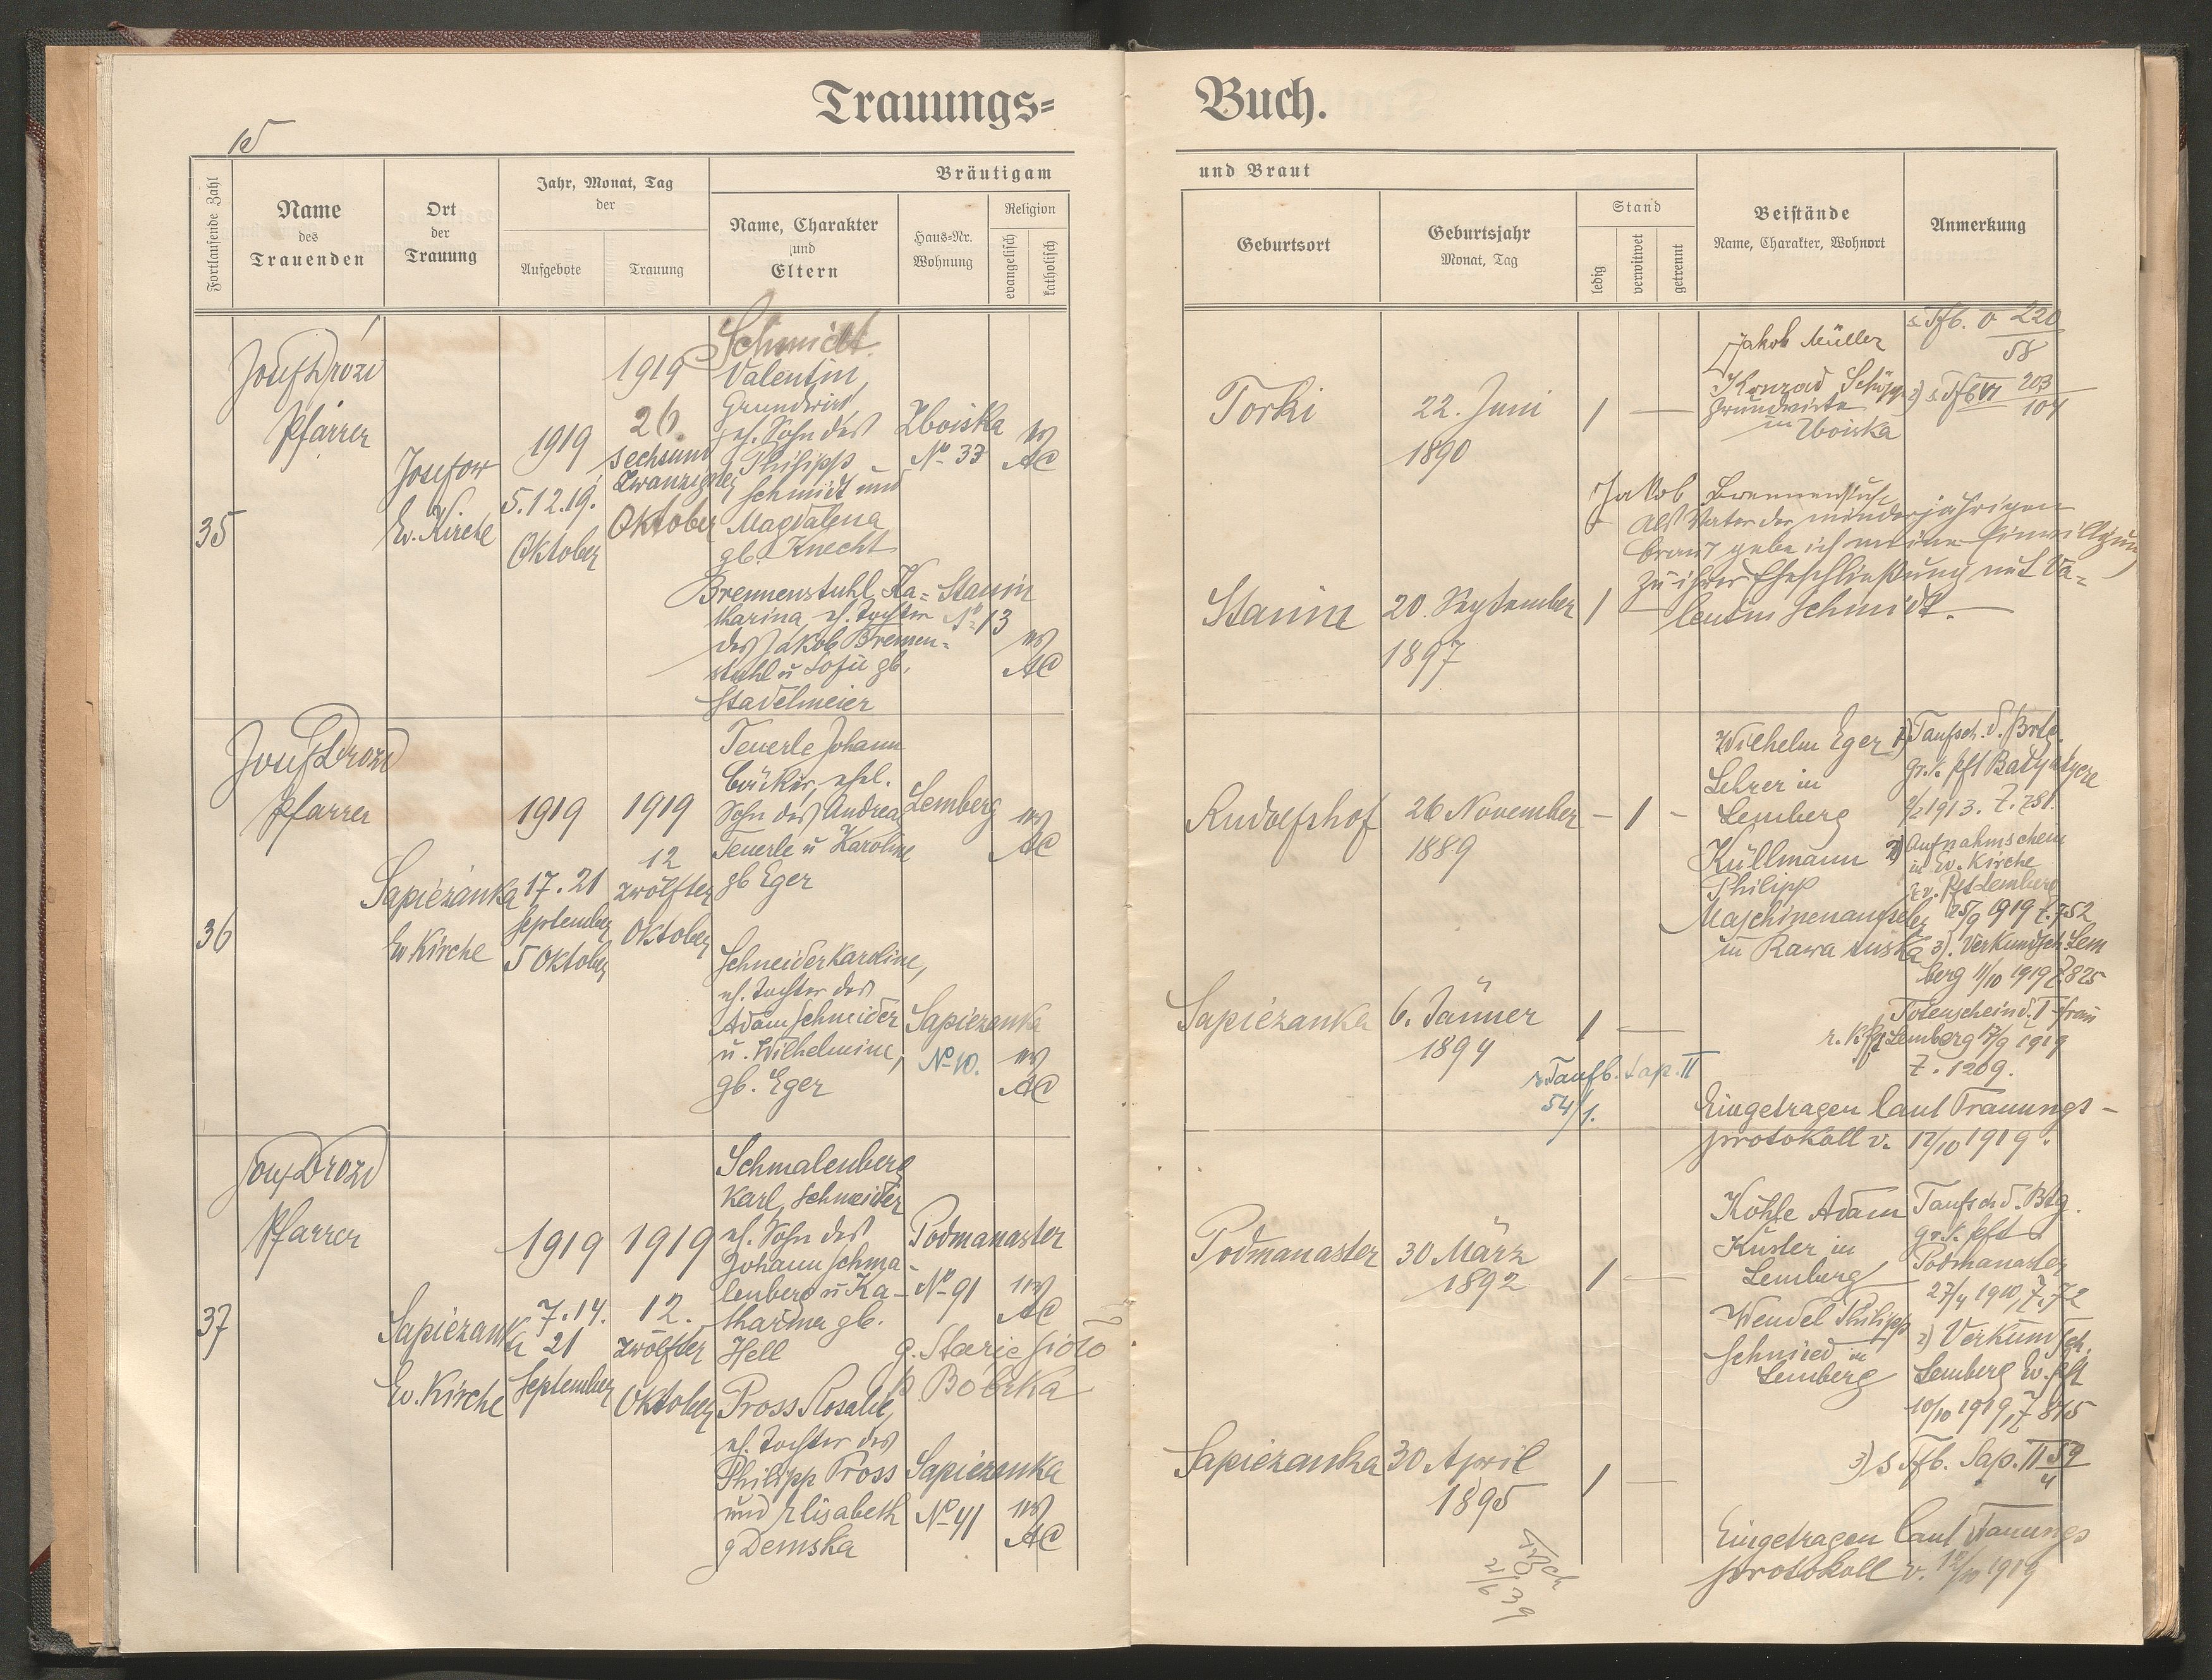 Trauungs=
Buch.
Fortlaufende Zahl
Name
des
Trauenden
Ort
der
Trauung
Jahr, Monat, Tag
der
Aufgebote
Trauung
Bräutigam
Name, Charakter
und
Eltern
Haus=Nr.
Wohnung
Religion
evangelisch
katholisch
und Braut
Geburtsort
Geburtsjahr
Monat, Tag
Stand
ledig
verwitwet
getrennt
Beistände
Name, Charakter, Wohnort
Anmerkung
35
Josef Drozd
Pfarrer
Josefow
Ev. Kirche
1919
5.12.19.
Oktober
1919
26.
sechsund
zwanzigster
Oktober
Schmidt
Valentin,
Grundwirt
eh. Sohn des
Philipp
Schmidt und
Magdalena
gb. Knecht
Zboiska
No 33
ev
AC
Torki
22. Juni
1890
1
Jakob Müller
Konrad Schöpp
Grundwirte
in Zboiska
s. Tfb. V 220
58
2) s. Tfb VI 203
104
Brennenstuhl Ka=
tharina, eh. Tochter
des Jakob Brennen=
stuhl u Sofie gb.
Stadelmeier
Stanin
No 13
ev
AC
Stanin
20. September
1897
1
Jakob Brennenstuhl
als Vater der minderjährigen
Braut gebe ich meine Einwilligung
zu ihrer Eheschließung mit Va=
lentin Schmidt.
36
Josef Drozd
Pfarrer
Sapiezanka
Ev Kirche
1919
17. 21
September
5 Oktober
1919
12
zwölfter
Oktober
Teuerle Johann
Bäcker, ehel.
Sohn des Andreas
Teuerle u Karoline
gb Eger
Lemberg
ev
AC
Rudolfshof
26 November
1889
– 1 –
Wilhelm Eger
Lehrer in
Lemberg
Küllmann
Philipp
Maschinenaufseher
in Rawa ruska
1) Taufsch. d. Brtg.
gr. k. Pft Batyatycze
1913. Z. 281.
2) Aufnahmschein
in Ev. Kirche
ev. Pft Lemberg
25/9 1919 Z. 752
3). Verkundsch. Lem
berg 11/10 1919 Z 825
Totenschein d. I Frau
r. k. Pft Lemberg 17/9 1919
Z. 1209.
Schneider Karoline,
eh. Tochter des
Adam Schneider
u. Wilhelmine,
gb. Eger
Sapiezanka
No 10.
ev
AC
Sapiezanka
6. Jänner
1894
1
s. Taufb. Sap. II
54/1.
Eingetragen laut Trauungs-
protokoll v. 12/10 1919.
37
Josef Drozd
Pfarrer
Sapiezanka
Ev. Kirche
1919
7. 14.
21
September
1919
12.
zwölfter
Oktober
Schmalenberg
Karl, Schneider
eh. Sohn des
Johann Schma-
lenberg u Ka-
tharina gb.
Hell
Podmanaster
No 91
g. Stare Siolo
p. Bobrka
ev
AC
Podmanaster
30 März
1892
1
Köhle Adam
Küster in
Lemberg
Wendel Philipp
Schmied in
Lemberg
Taufsch d. Btg.
gr. k. Pft
Podmanaster
27/4 1910, Z. 72
2) Verkundsch.
Lemberg Ev. Pft
10/10 1919, Z 815
3) s Tfb. Sap. II 59
4
Pross Rosalie,
eh. Tochter des
Philipp Pross
und Elisabeth
g Demska
Sapiezanka
No 41
ev
AC
Sapiezanka
30 April
1895
1
Eingetragen laut Trauungs
protokoll v. 12/10 1919
21/6 39